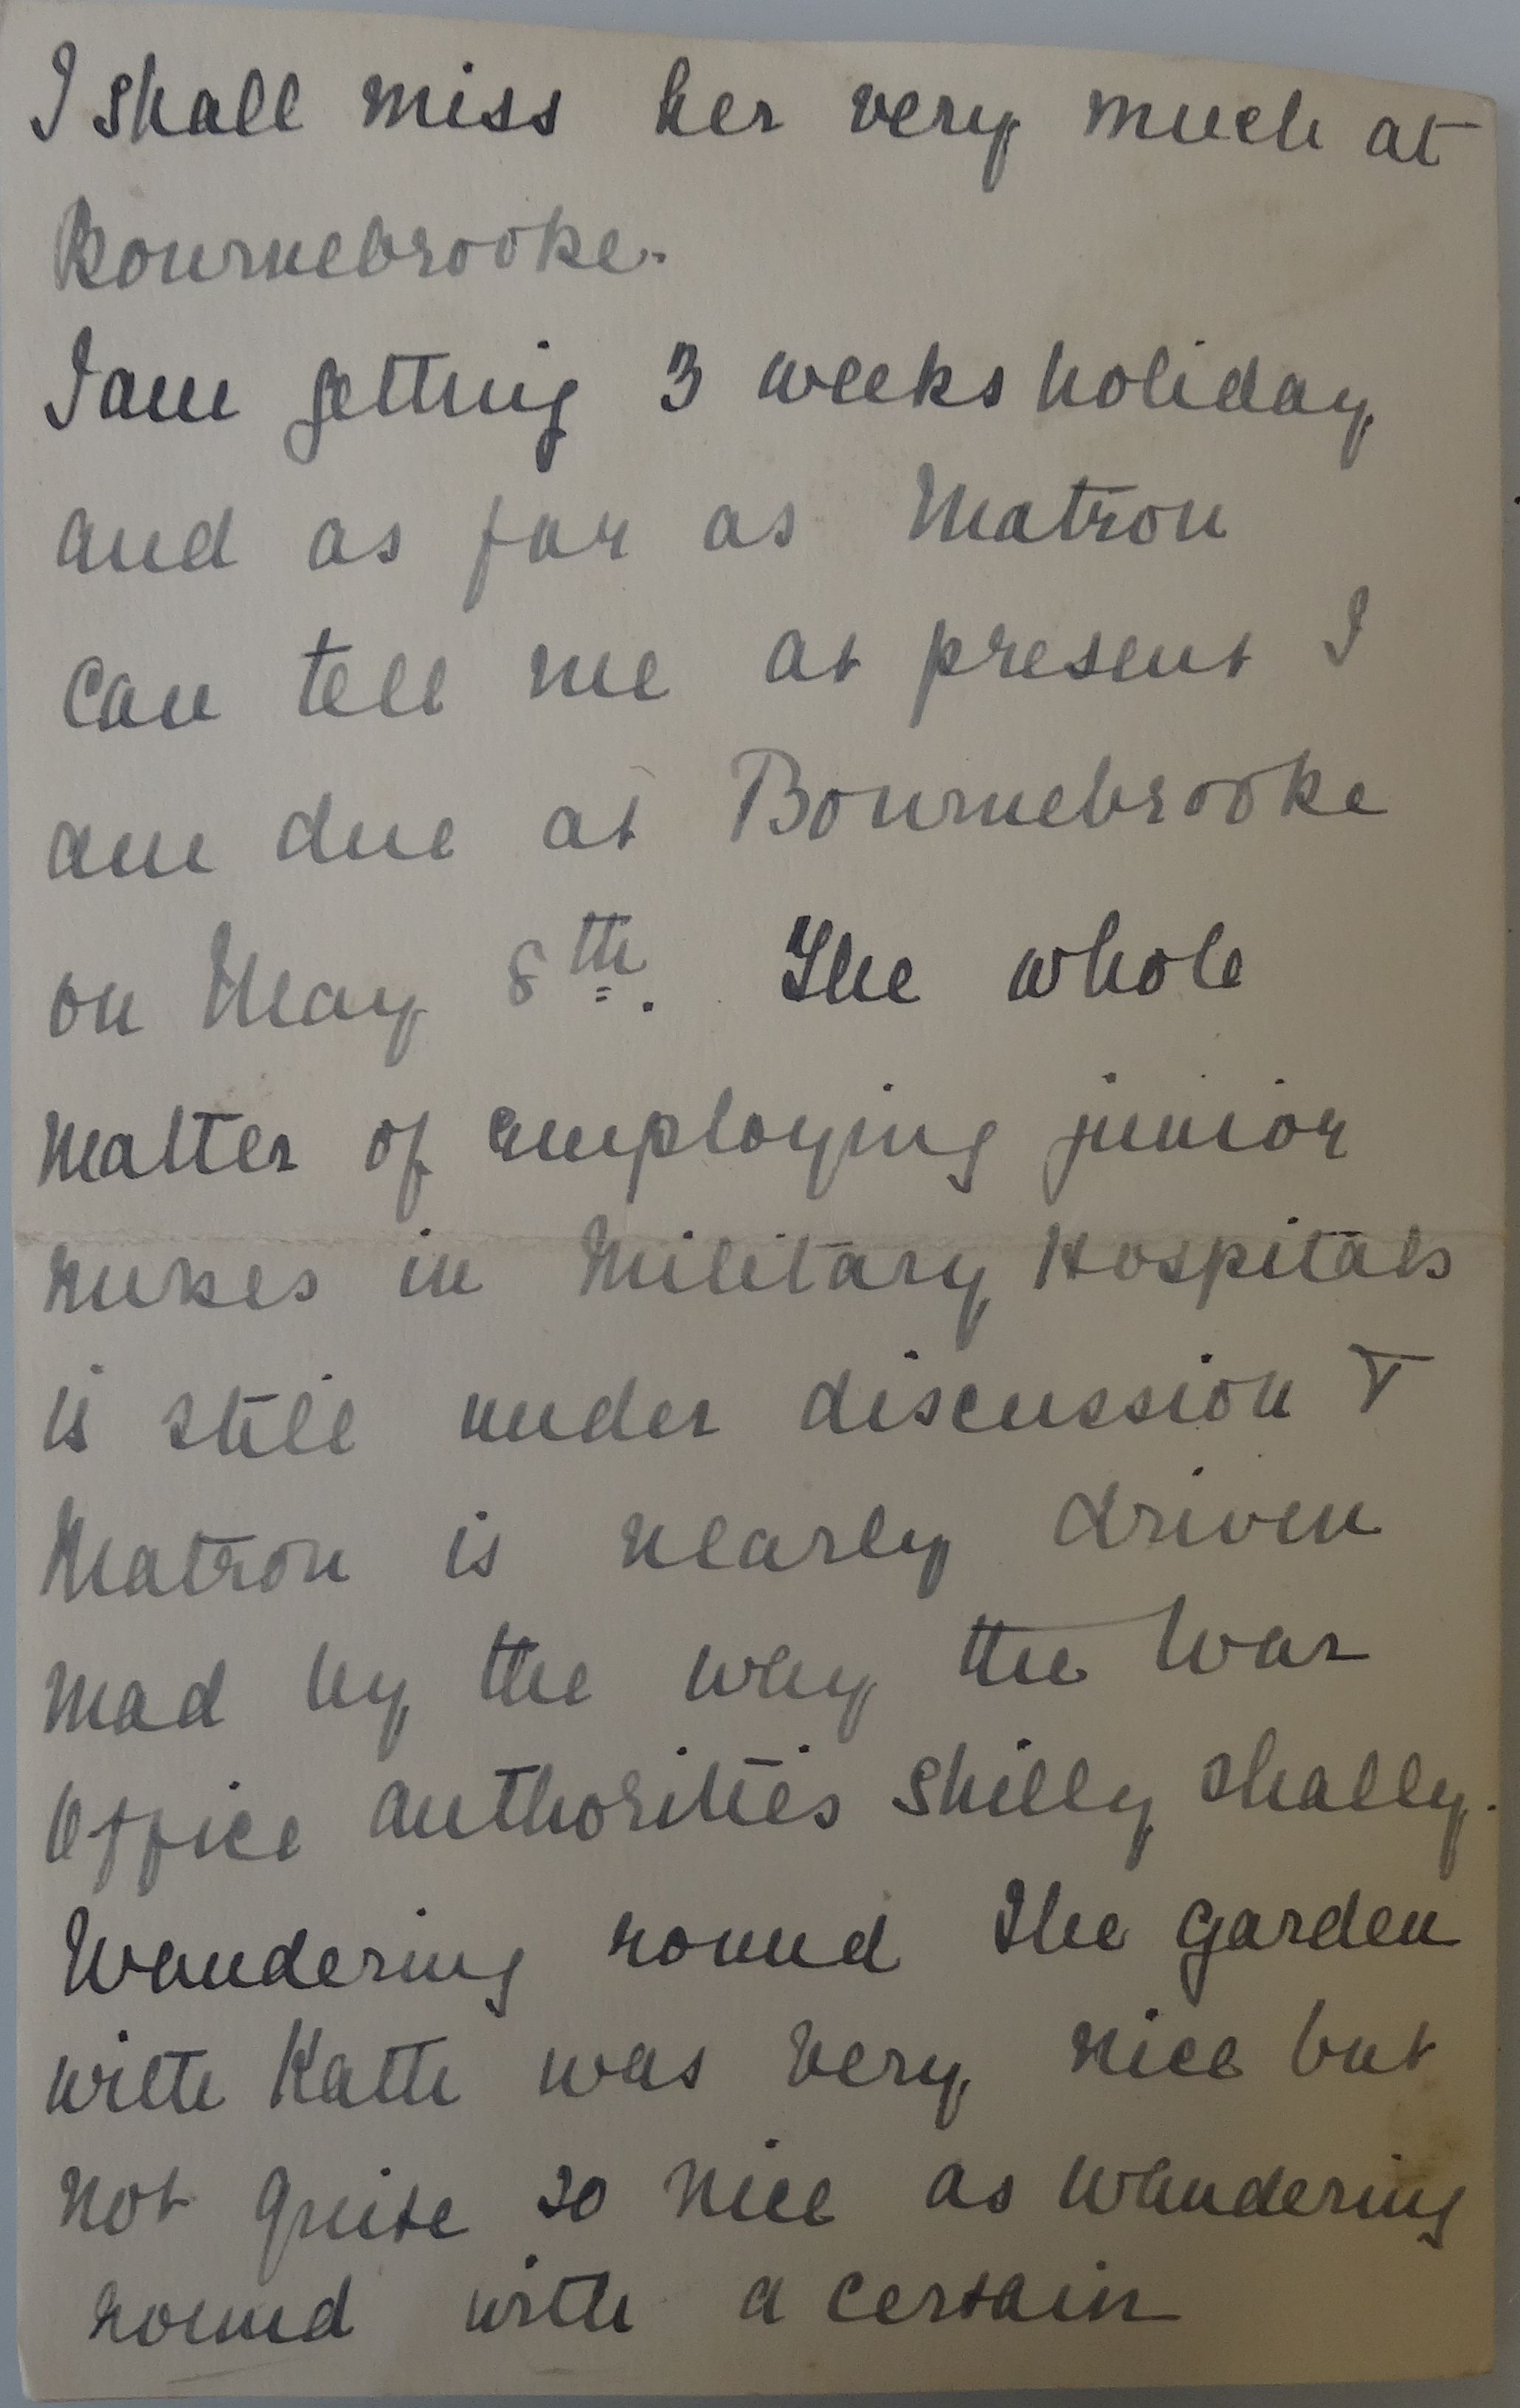 I shall miss her very much at
Bournebrooke.
I am getting 3 weeks holiday
and as far as Matron
can tell me at present I
am due at Bournebrooke
on May 8th. The whole
matter of employing junior
nurses in Military Hospitals
is still under discussion &
Matron is nearly driven
mad by the way the War
Office authorities shilly shally.
Wandering round the garden
with Kath was very nice but
not quite so nice as wandering
round with a certain